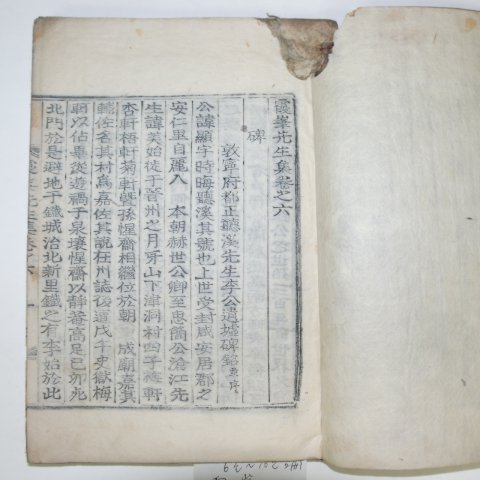 霞峯先生集卷之六
碑
敦寧府都正聽溪先生李公遺墟碑銘 並序
公諱顯字時晦聽溪其號也上世受封咸安居郡之
安仁里自麗入 本朝赫世公卿至忠簡公滄江先
生諱美始徒于晉州之月牙山下津洞村四子梅軒
杏軒梧軒菊軒曁孫惺齋相繼位於朝 成廟嘉其
輔佐名其村爲嘉佐其說在州誌後遭戊午史獄梅
軒以佔畢從遊禍于泉壤惺齋以靜菴高足己卯死
北門於是避地于鐵城治北新里鐵之有李始於此